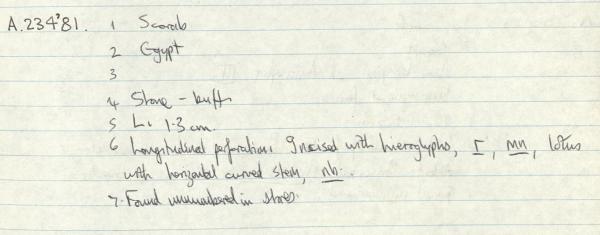 A.234'81. 1 Scarab
2 Egypt
3
4 Stone - buff
5 L. 1.3 cm.
6 Longitudinal perforation. Incised with hieroglyphs, r, mn, lotus
with horizontal curved stem, nb.
7. Found unnumbered in stores.